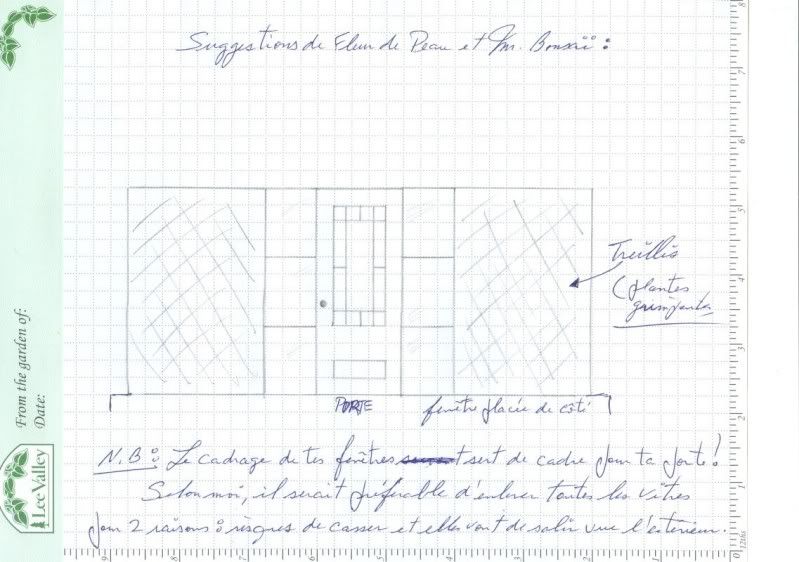 Suggestions de Fleur de Peau et M. Bonsaï :
Treillis
(plantes
grimpantes
PORTE
fenêtre placée de côté
N.B : Le cadrage de tes fenêtres sert de cadre pour ta porte !
Selon moi, il serait préférable d'enlever toutes les vitres
pour 2 raisons : risques de casser et elles vont de salir vue l'extérieur.
From the garden of:
Date:
Lee Valley
8
7
6
5
4
3
2
1
0
12ths
9
8
7
6
5
4
3
2
1